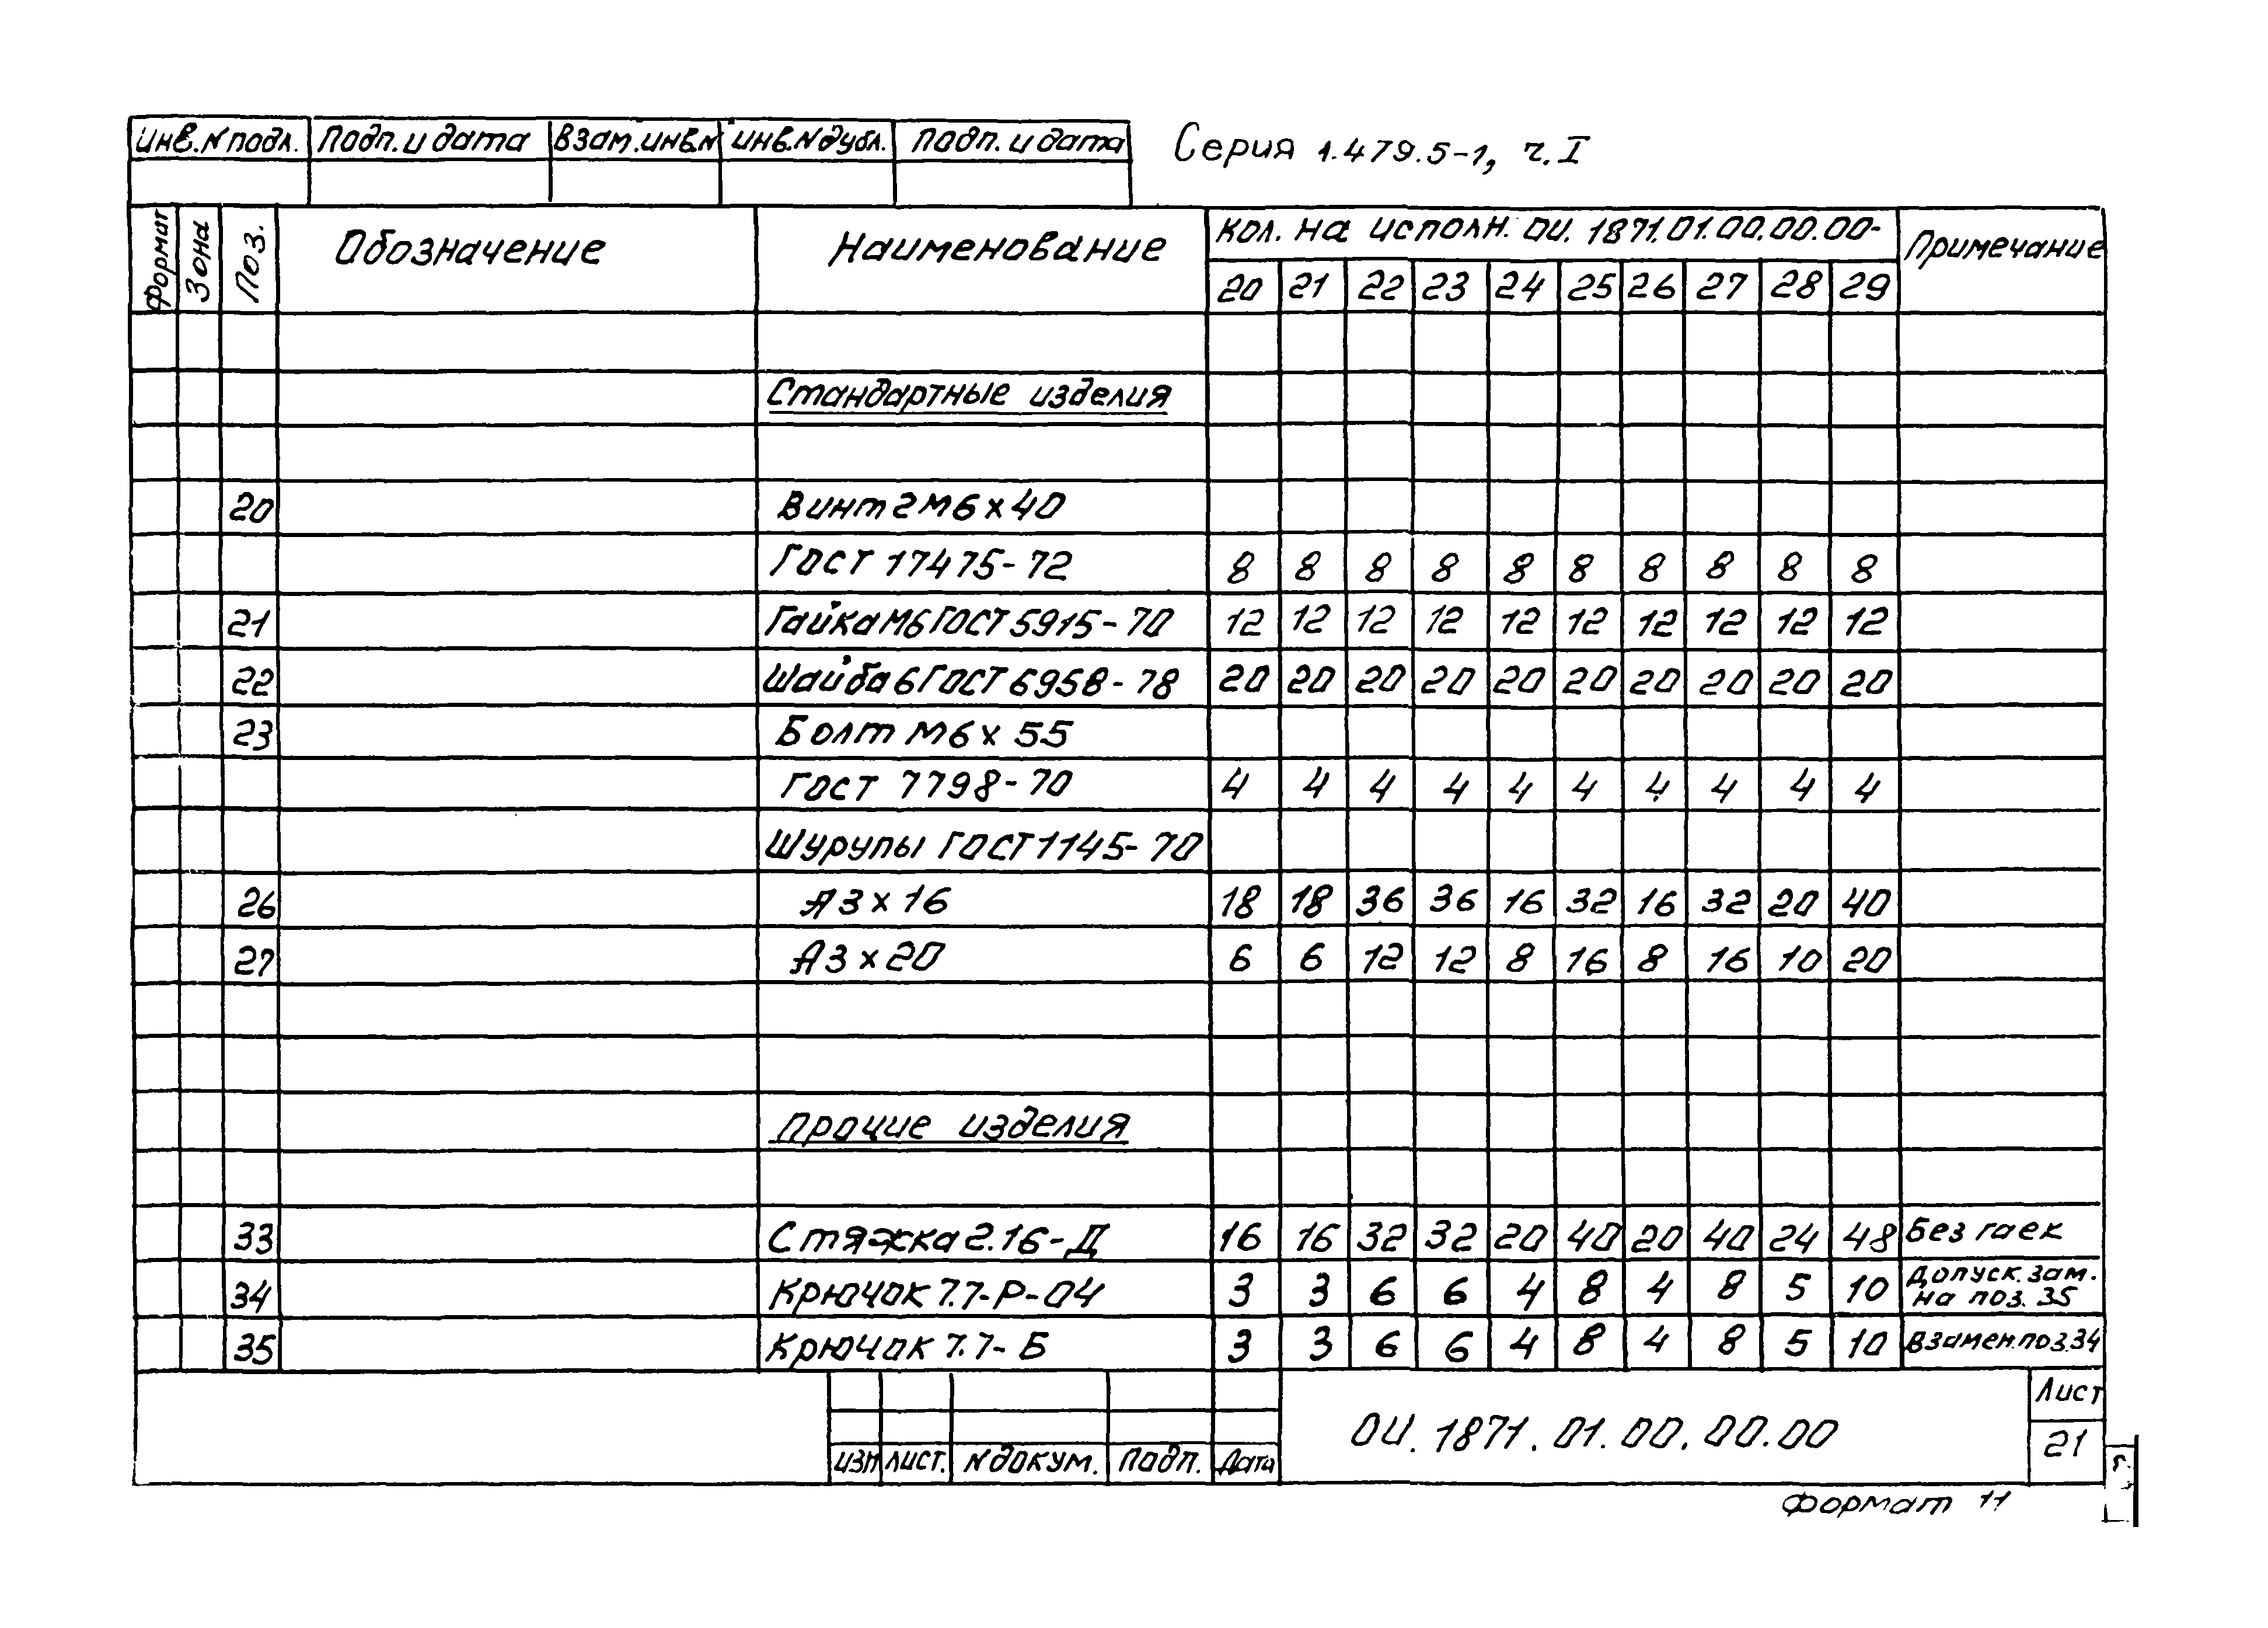 Инв.N подл. Подп. и дата Взам.инв.N Инв.N дубл. Подп. и дата Серия 1.479.5-1, ч.I
Формат Зона Поз. Обозначение Наименование Кол. на исполн. ОИ. 1871.01.00.00.00- Примечание
20 21 22 23 24 25 26 27 28 29
Стандартные изделия
20 Винт 2М6х40
ГОСТ 17475-72 8 8 8 8 8 8 8 8 8 8
21 Гайка М6 ГОСТ 5915-70 12 12 12 12 12 12 12 12 12 12
22 Шайба 6 ГОСТ 6958-78 20 20 20 20 20 20 20 20 20 20
23 Болт М6х55
ГОСТ 7798-70 4 4 4 4 4 4 4 4 4 4
Шурупы ГОСТ 1145-70
26 А3х16 18 18 36 36 16 32 16 32 20 40
27 А3х20 6 6 12 12 8 16 8 16 10 20
Прочие изделия
33 Стяжка 2.16-Д 16 16 32 32 20 40 20 40 24 48 Без гаек
34 Крючок 7.7-Р-04 3 3 6 6 4 8 4 8 5 10 Допуск. зам.
на поз. 35
35 Крючок 7.7-Б 3 3 6 6 4 8 4 8 5 10 Взамен.поз.34
Изм Лист. N докум. Подп. Дата ОИ. 1871.01.00.00.00 Лист
21
Формат 11